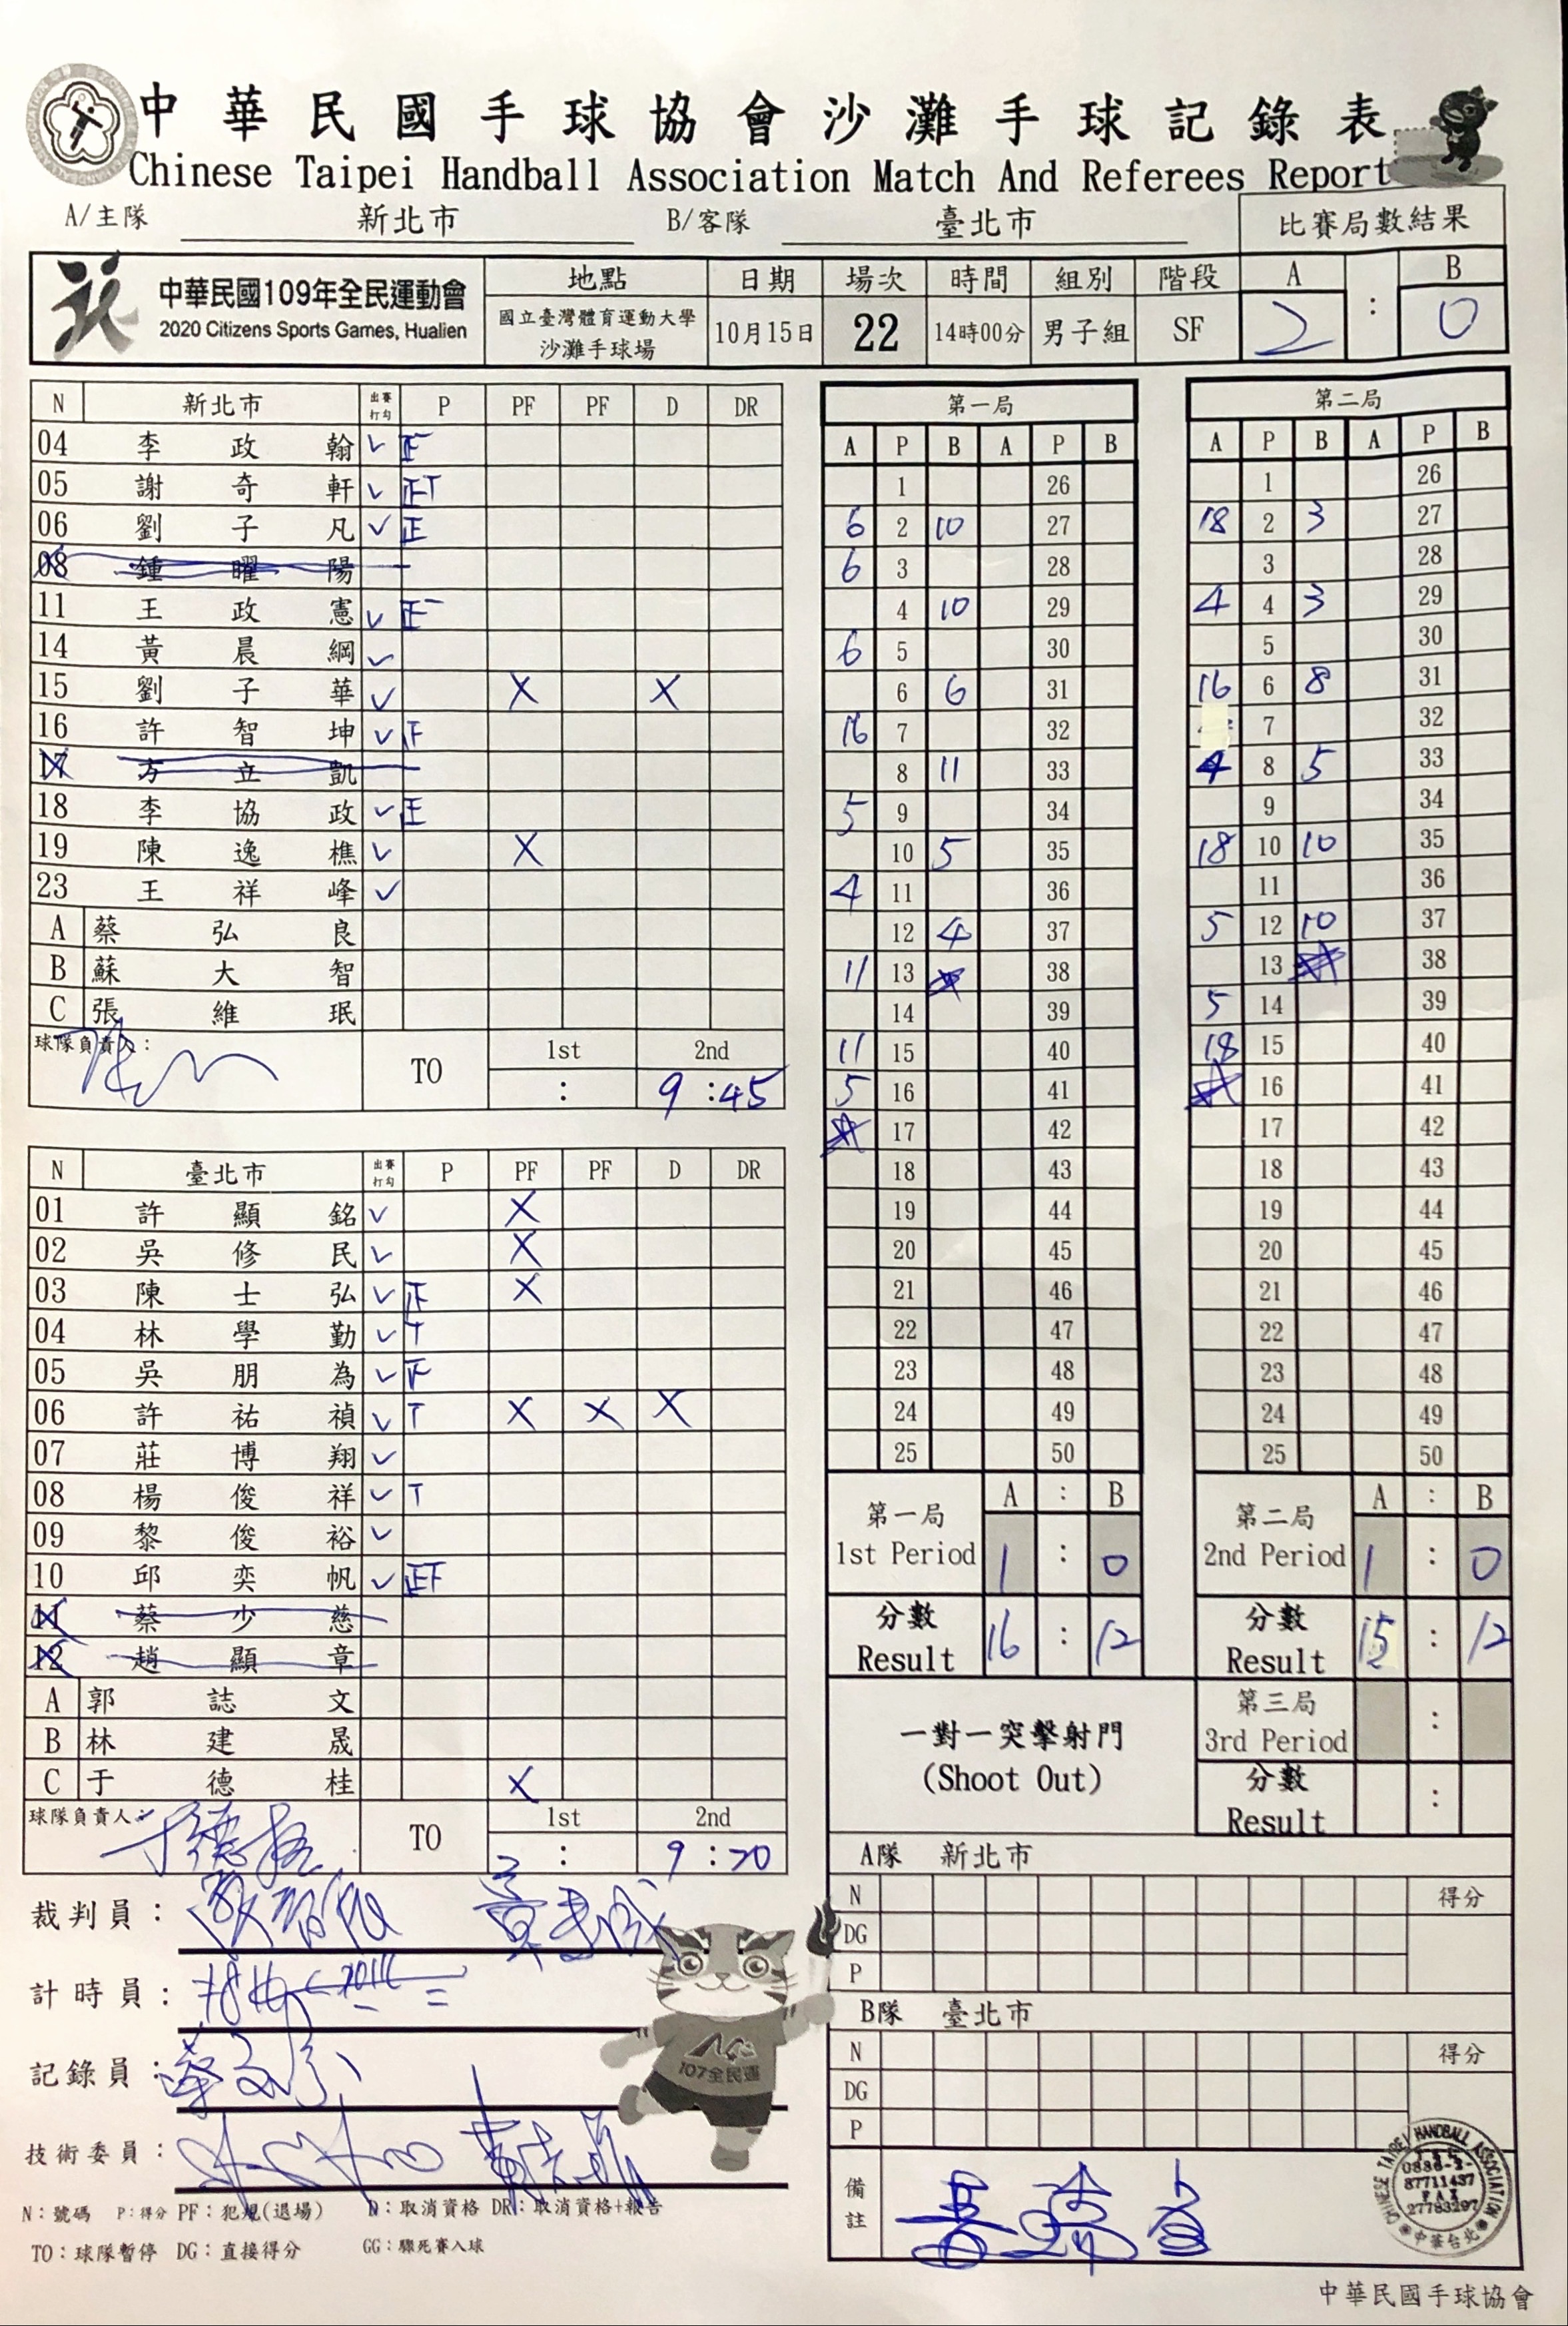 中華民國手球協會沙灘手球記錄表
Chinese Taipei Handball Association Match And Referees Report
A/主隊 新北市 B/客隊 臺北市 比賽局數結果
中華民國109年全民運動會 地點 日期 場次 時間 組別 階段 A : B
2020 Citizens Sports Games, Hualien 國立臺灣體育運動大學 沙灘手球場 10月15日 22 14時00分 男子組 SF 2 0
N 新北市 出賽打勾 P PF PF D DR
04 李政翰 ✓ 正
05 謝奇軒 ✓ 正T
06 劉子凡 ✓ 正
08 鍾曜陽
11 王政憲 ✓ 正一
14 黃晨綱 ✓
15 劉子華 ✓ X X
16 許智坤 ✓ F
17 方立凱
18 李協政 ✓ 正
19 陳逸樵 ✓ X
23 王祥峰 ✓
A 蔡弘良
B 蘇大智
C 張維珉
球隊負責人: TO 1st : 2nd 9:45
N 臺北市 出賽打勾 P PF PF D DR
01 許顯銘 ✓ X
02 吳修民 ✓ X
03 陳士弘 ✓ 正 X
04 林學勤 ✓ T
05 吳朋為 ✓ F
06 許祐禎 ✓ T X X X
07 莊博翔 ✓
08 楊俊祥 ✓ T
09 黎俊裕 ✓
10 邱奕帆 ✓ 正F
11 蔡少慈
12 趙顯章
A 郭誌文
B 林建晟
C 于德桂 X
球隊負責人: 于德桂 TO 1st : 2nd 9:20
裁判員:
計時員:
記錄員:
技術委員:
N:號碼 P:得分 PF:犯規(退場) D:取消資格 DR:取消資格+報告
TO:球隊暫停 DG:直接得分 GG:驟死賽入球
第一局
A P B A P B
1 26
6 2 10 27
6 3 28
4 10 29
6 5 30
6 6 31
16 7 32
8 11 33
5 9 34
10 5 35
4 11 36
12 4 37
11 13 38
14 39
11 15 40
5 16 41
17 42
18 43
19 44
20 45
21 46
22 47
23 48
24 49
25 50
第一局 1st Period A : B
1 : 0
分數 Result 16 : 12
第二局
A P B A P B
1 26
18 2 3 27
3 28
4 4 3 29
5 30
16 6 8 31
7 32
4 8 5 33
9 34
18 10 10 35
11 36
5 12 10 37
13 38
5 14 39
18 15 40
16 41
17 42
18 43
19 44
20 45
21 46
22 47
23 48
24 49
25 50
第二局 2nd Period A : B
1 : 0
分數 Result 15 : 12
一對一突擊射門
(Shoot Out)
第三局 3rd Period :
分數 Result :
A隊 新北市
N 得分
DG
P
B隊 臺北市
N 得分
DG
P
備註
107全民運
CHINESE TAIPEI HANDBALL ASSOCIATION
0886-2-
87711437
FAX
27783297
中華台北
中華民國手球協會